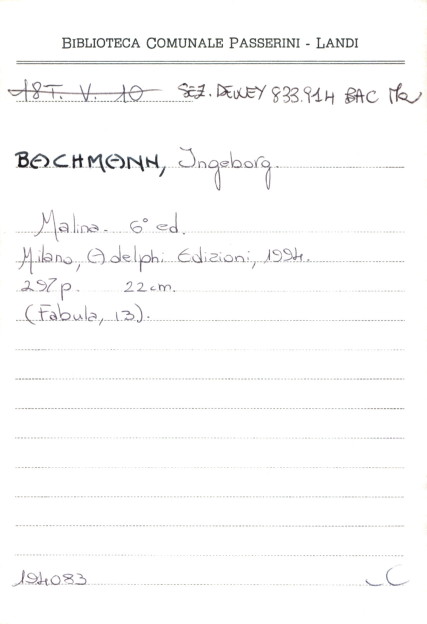 BIBLIOTECA COMUNALE PASSERINI - LANDI
18T. V. 10 SEZ. DEWEY 833.914 BAC Ma
BACHMANN, Ingeborg.
Malina. 6° ed.
Milano, Adelphi Edizioni, 1994.
297p. 22cm.
(Fabula, 13).
194083